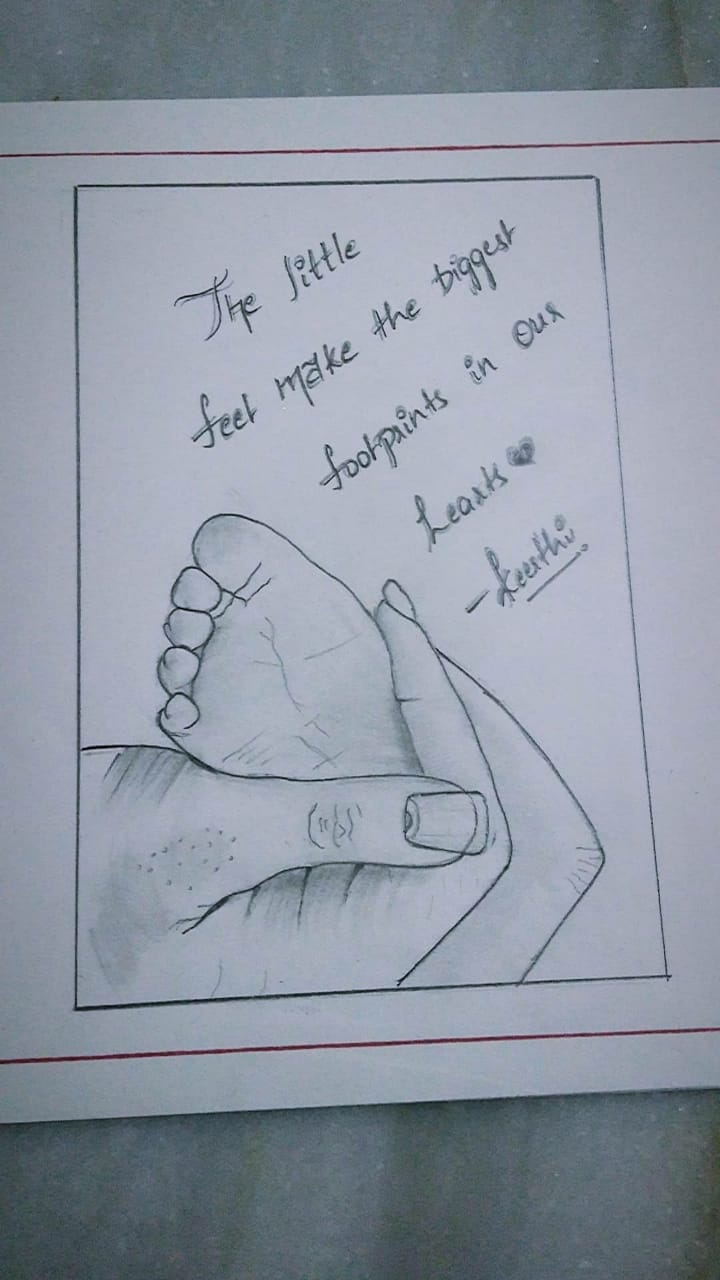 The little
feet make the biggest
footprints in our
hearts
- Keerthi